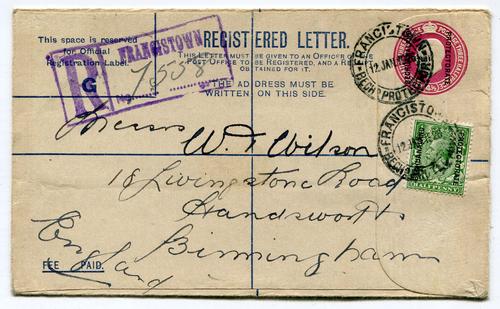 This space is reserved
for Official
Registration Label.
REGISTERED LETTER.
THIS LETTER MUST BE GIVEN TO AN OFFICER OF THE
POST OFFICE TO BE REGISTERED, AND A RECEIPT
OBTAINED FOR IT.
THE ADDRESS MUST BE
WRITTEN ON THIS SIDE.
R
FRANCISTOWN
No. 7558
G
FRANCISTOWN
12 JAN
BECH. PROTECTORATE
FRANCISTOWN
12 JAN
BECHUANALAND
PROTECTORATE
HALFPENNY
Messrs
W. T. Wilson
18 Livingstone Road
Handsworth
Birmingham
England
FEE PAID.